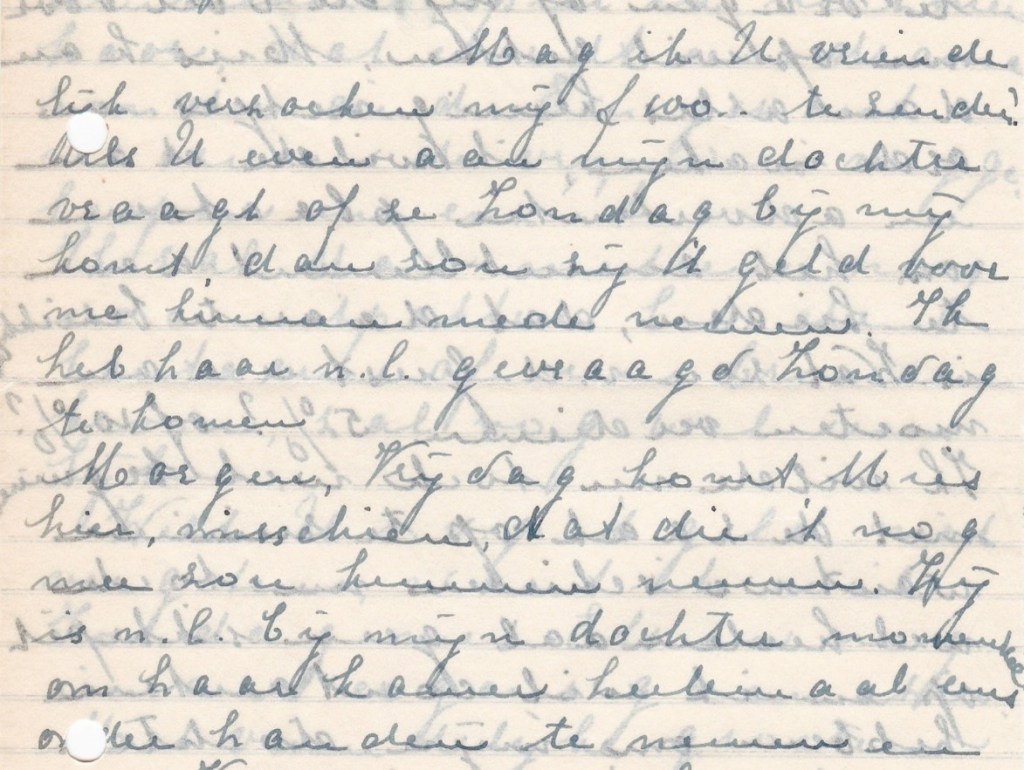 Mag ik U vriende
lijk verzoeken mij f 100.. te zenden?
Als U even aan mijn dochter
vraagt of ze Zondag bij mij
komt, dan zou zij 't geld voor
me kunnen mede, nemen. Ik
heb haar n.l. gevraagd Zondag
te komen
Morgen, Vrijdag komt Mies
hier, misschien, dat die 't nog
mee zou kunnen nemen. Hij
is n.l. bij mijn dochter momenteel
om haar kamer helemaal eens
onder handen te nemen en